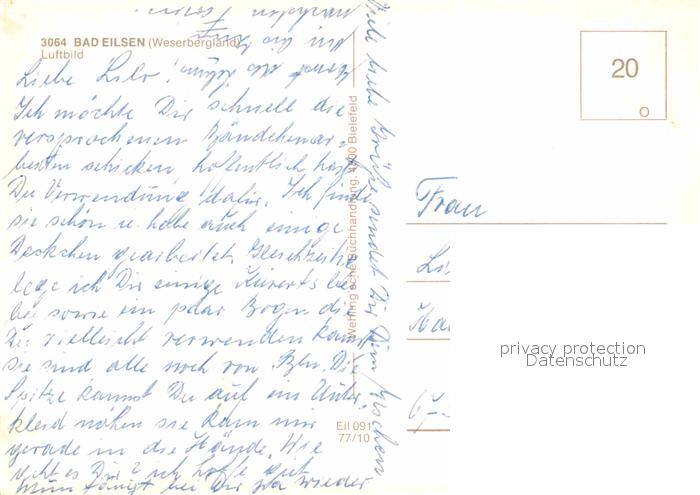 3064 BAD EILSEN (Weserbergland)
Luftbild
Liebe Lilo!
Ich möchte Dir schnell die
versprochenen Bändchenar-
beiten schicken, hoffentlich hast
Du Verwendung dafür. Ich finde
sie schön u. habe auch einige
Deckchen gearbeitet. Gleichzeitig
lege ich Dir einige Kuverts bei
sowie ein paar Bogen die
Du vielleicht verwenden kannst
sie sind alle noch von Die
Spitze kannst Du auf ein Unter-
kleid nähen sie kam mir
gerade in die Hände. Wie
geht es Dir? ich hoffe gut
Nun fängt bei Dir ja wieder
die
Viele liebe Grüße sendet Dir Dein
Wehling'sche Buchhandlung, 4800 Bielefeld
Eil 091
77/10
20
O
Frau
privacy protection
Datenschutz